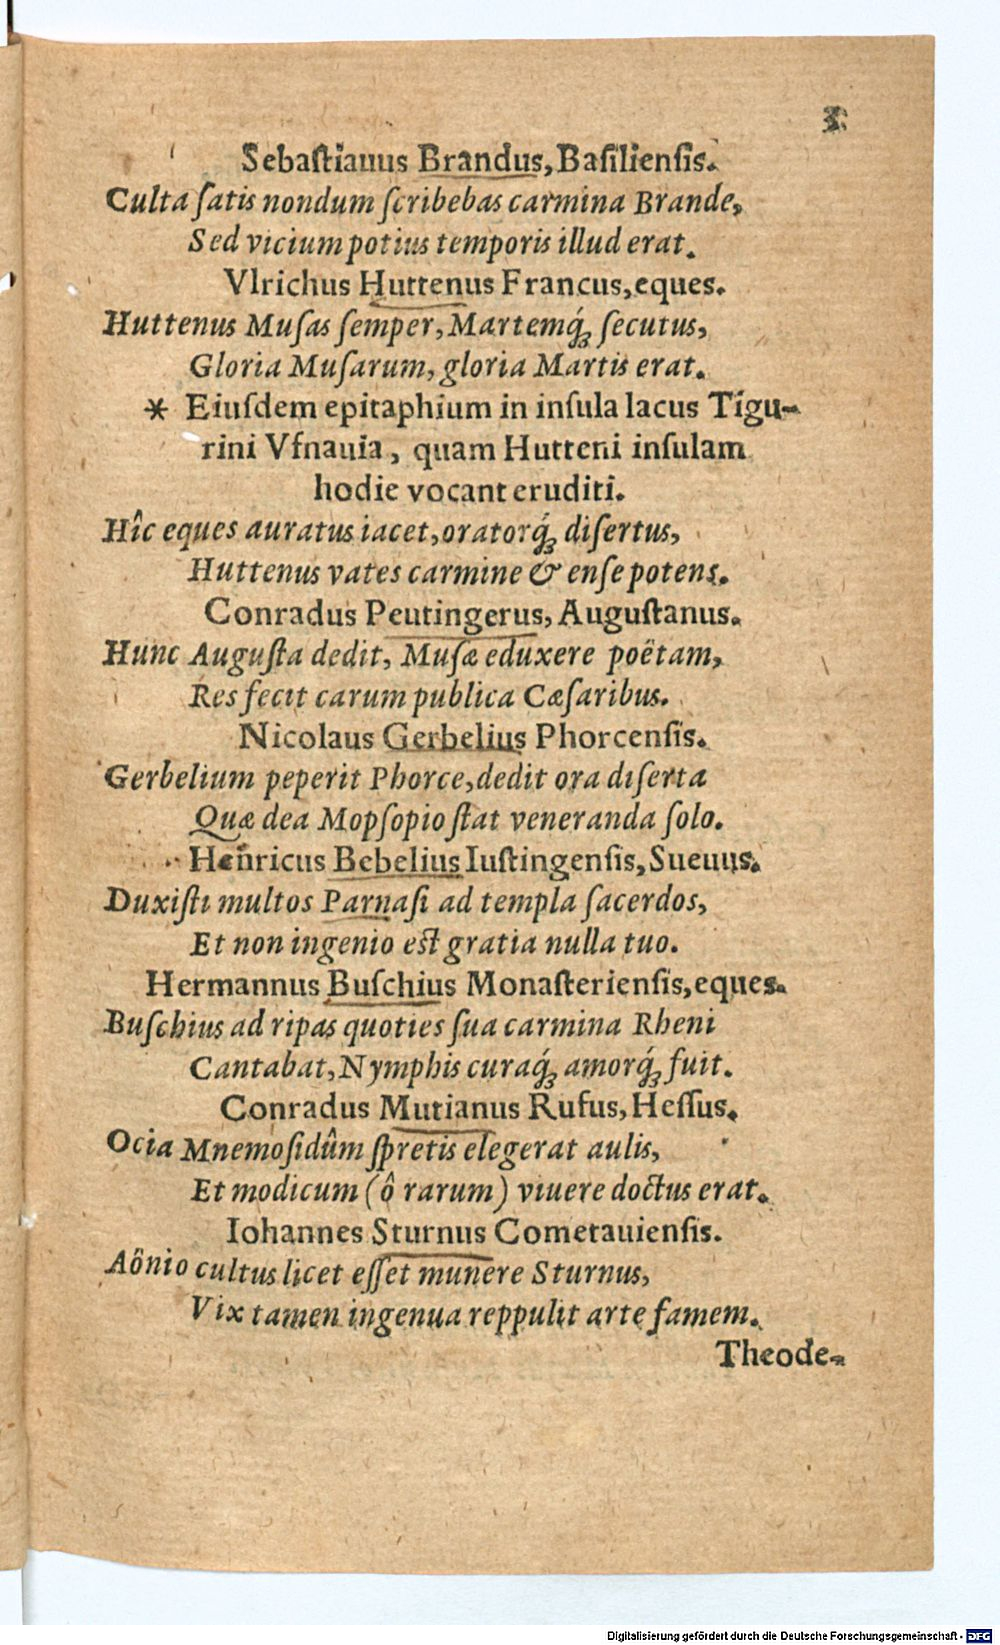 3.
Sebaſtianus Brandus, Baſilienſis.
Culta ſatis nondum ſcribebas carmina Brande,
Sed vicium potius temporis illud erat.
Vlrichus Huttenus Francus, eques.
Huttenus Muſas ſemper, Martemq́; ſecutus,
Gloria Muſarum, gloria Martis erat.
* Eiuſdem epitaphium in inſula lacus Tigu-
rini Vfnauia, quam Hutteni inſulam
hodie vocant eruditi.
Hîc eques auratus iacet, oratorq́; diſertus,
Huttenus vates carmine & enſe potens.
Conradus Peutingerus, Auguſtanus.
Hunc Auguſta dedit, Muſæ eduxere poëtam,
Res fecit carum publica Cæſaribus.
Nicolaus Gerbelius Phorcenſis.
Gerbelium peperit Phorce, dedit ora diſerta
Quæ dea Mopſopio ſtat veneranda ſolo.
Henricus Bebelius Iuſtingenſis, Sueuus.
Duxiſti multos Parnaſi ad templa ſacerdos,
Et non ingenio eſt gratia nulla tuo.
Hermannus Buſchius Monaſterienſis, eques.
Buſchius ad ripas quoties ſua carmina Rheni
Cantabat, Nymphis curaq́; amorq́; fuit.
Conradus Mutianus Rufus, Heſſus.
Ocia Mnemoſidûm ſpretis elegerat aulis,
Et modicum (ô rarum) viuere doctus erat.
Iohannes Sturnus Cometauienſis.
Aônio cultus licet eſſet munere Sturnus,
Vix tamen ingenua reppulit arte famem.
Theode-
Digitalisierung gefördert durch die Deutsche Forschungsgemeinschaft - DFG